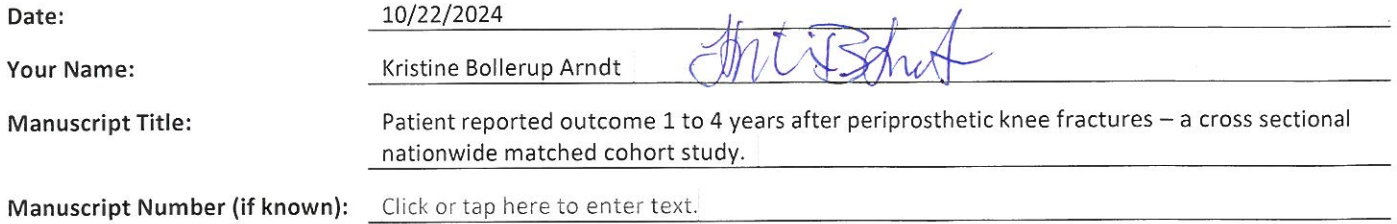 Date: 10/22/2024
Your Name: Kristine Bollerup Arndt
Manuscript Title: Patient reported outcome 1 to 4 years after periprosthetic knee fractures – a cross sectional
nationwide matched cohort study.
Manuscript Number (if known): Click or tap here to enter text.